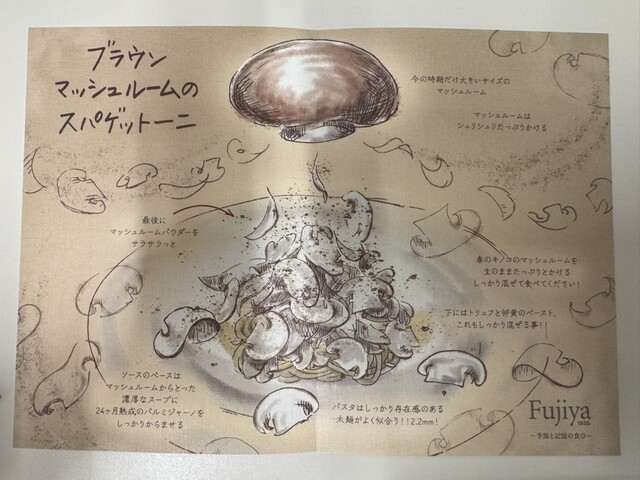 ブラウン
マッシュルームの
スパゲットーニ
今の時期だけ大きいサイズの
マッシュルーム
マッシュルームは
シュリシュリたっぷりかける
最後に
マッシュルームパウダーを
サラサラっと
春のキノコのマッシュルームを
生のままたっぷりとかける
しっかり混ぜて食べてください!
下にはトリュフと卵黄のペースト、
これもしっかり混ぜる事!!
ソースのベースは
マッシュルームからとった
濃厚なスープに
24ヶ月熟成のパルミジャーノを
しっかりからませる
パスタはしっかり存在感のある
太麺がよく似合う!!2.2mm!
Fujiya
1935
〜季節と記憶の食卓〜